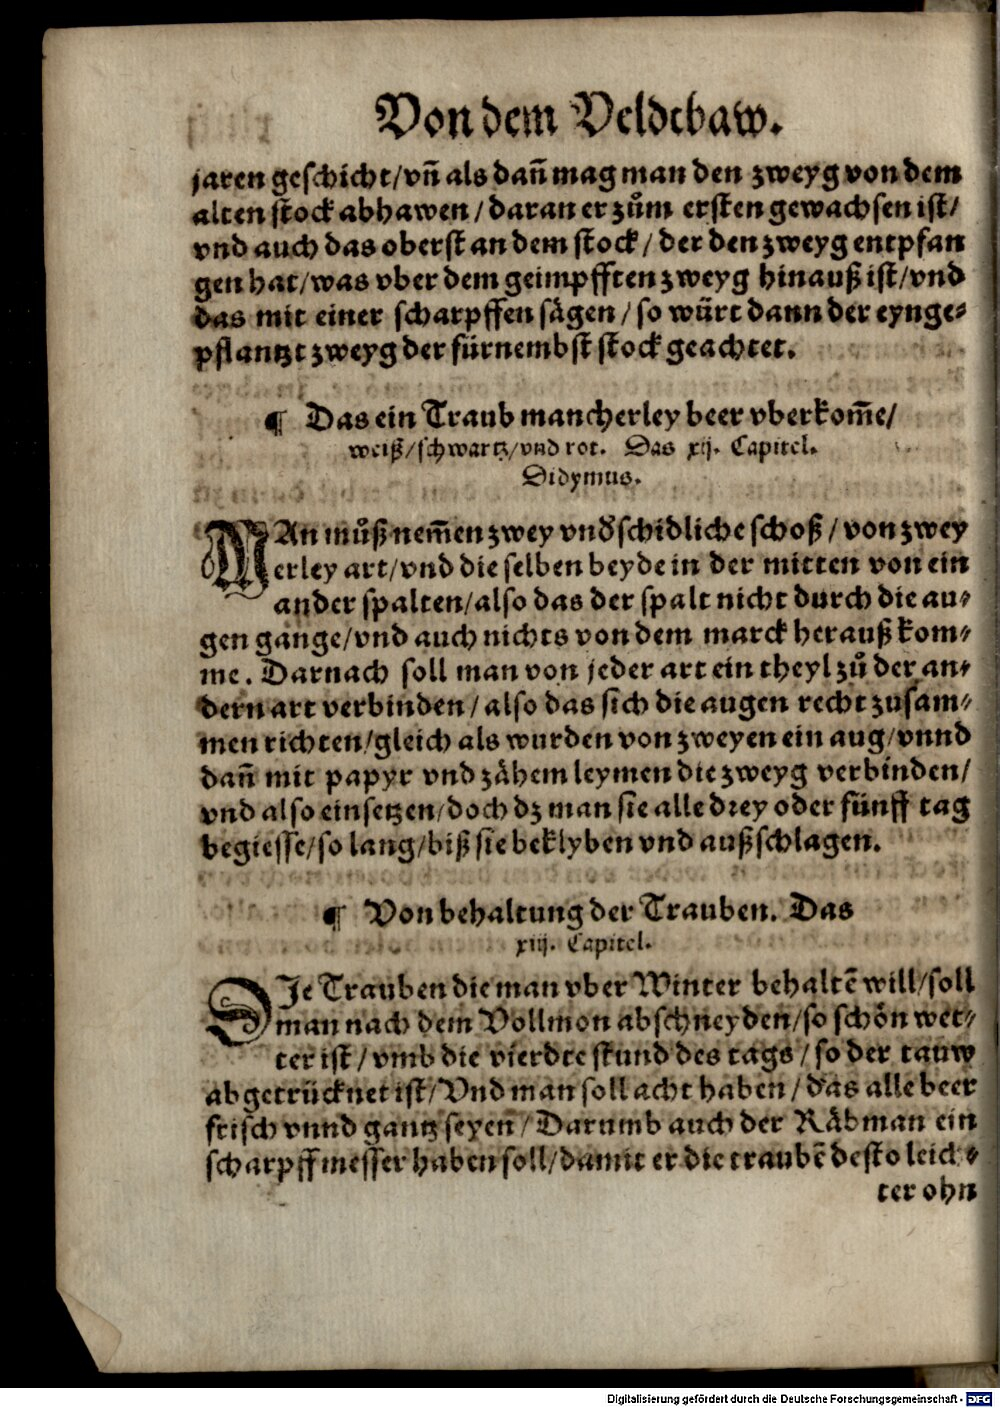 Von dem Veldtbaw.
jaren geschicht/vñ als dañ mag man den zweyg von dem
alten stock abhawen/daran er zům ersten gewachsen ist/
vnd auch das oberst an dem stock/der den zweyg entpfan
gen hat/was vber dem geimpfften zweyg hinauß ist/vnd
das mit einer scharpffen sägen/so würt dann der eynge⸗
pflantzt zweyg der fürnembst stock geachtet.
¶ Das ein Traub mancherley beer vberkom̃e/
weiß/schwartz/vnd rot. Das xij. Capitel.
Didymus.
MAn můß nem̃en zwey vnd'schidliche schoß/von zwey
erley art/vnd die selben beyde in der mitten von ein
ander spalten/also das der spalt nicht durch die au⸗
gen gange/vnd auch nichts von dem marck herauß kom⸗
me. Darnach soll man von jeder art ein theyl zů der an⸗
dern art verbinden/also das sich die augen recht zusam⸗
men richten/gleich als wurden von zweyen ein aug/vnnd
dañ mit papyr vnd zähem leymen die zweyg verbinden/
vnd also einsetzen/doch dz man sie alle drey oder fünff tag
begiesse/so lang/biß sie beklyben vnd außschlagen.
¶ Von behaltung der Trauben. Das
xiij. Capitel.
DJe Trauben die man vber Winter behaltẽ will/soll
man nach dem Vollmon abschneyden/so schön wet⸗
ter ist/vmb die vierdte stund des tags/so der tauw
abgetrücknet ist/Vnd man soll acht haben/das alle beer
frisch vnnd gantz seyen/Darumb auch der Räbman ein
scharpff messer haben soll/damit er die traubẽ desto leich⸗
ter ohn
Digitalisierung gefördert durch die Deutsche Forschungsgemeinschaft - DFG